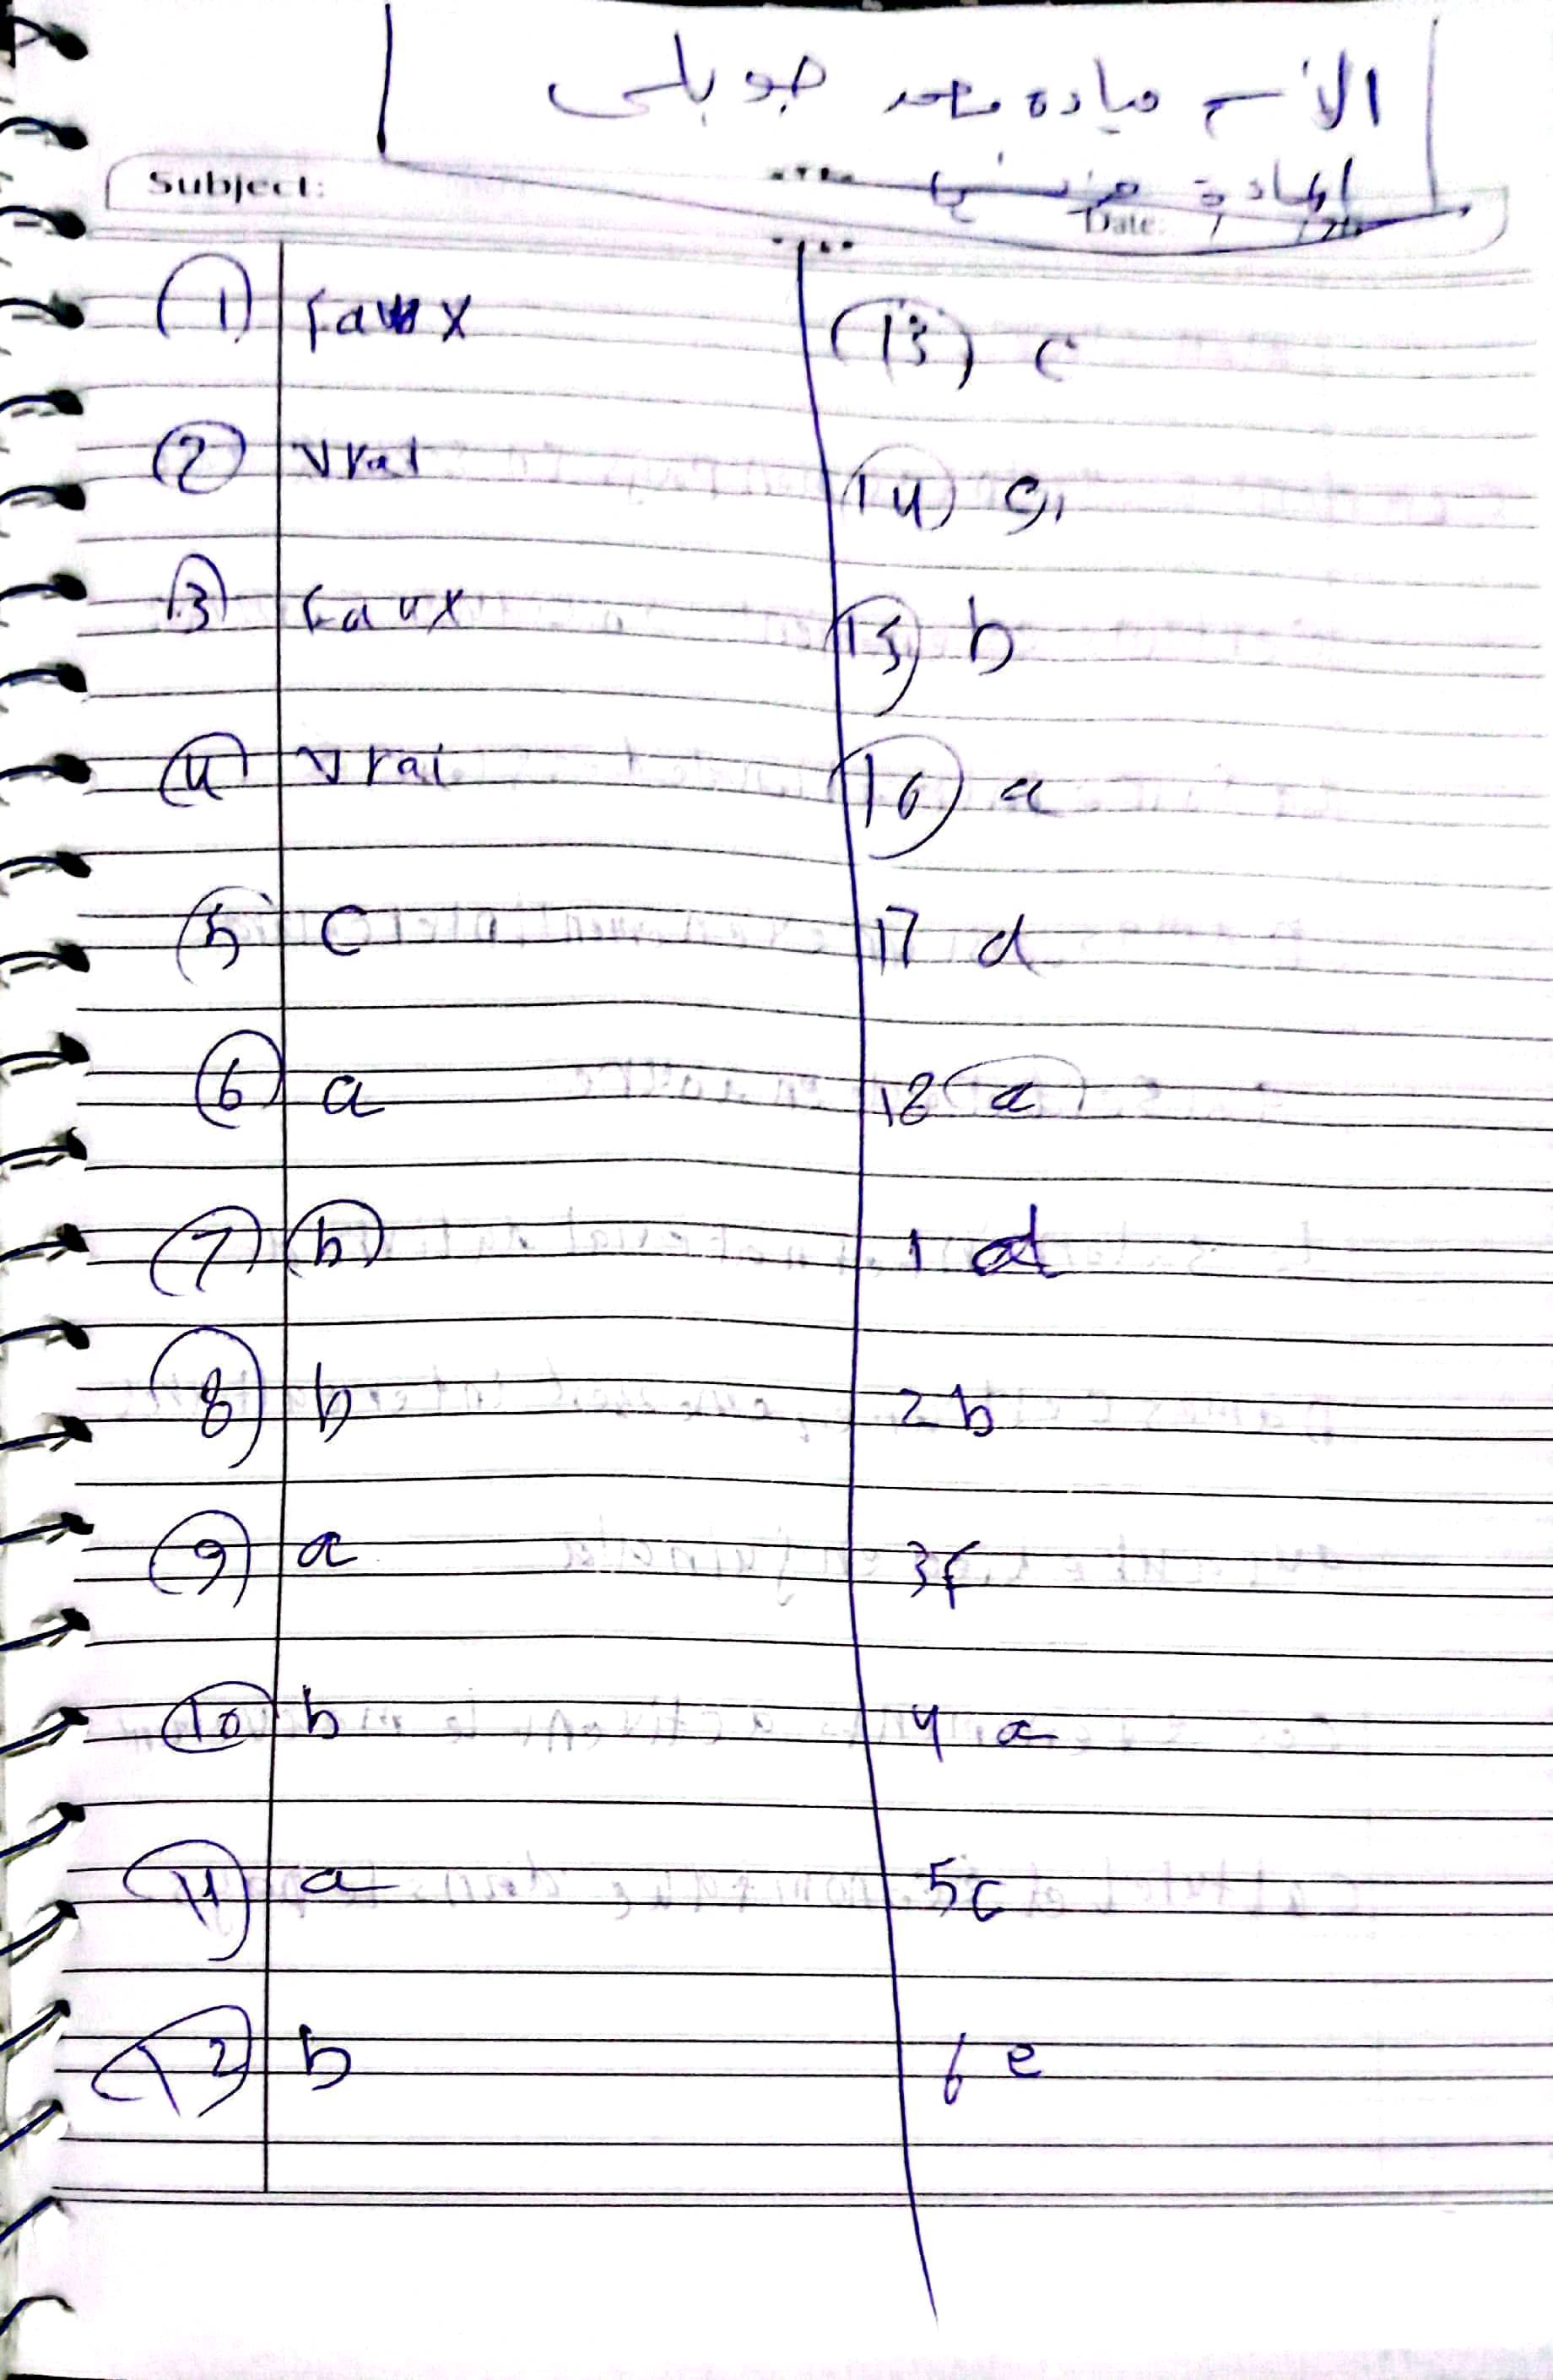 الاسم مياده محمد جوبلي
المادة فرنسي
Subject:
Date: / /20
1 faux
2 vrai
3 faux
4 vrai
5 c
6 a
7 b
8 b
9 a
10 b
11 a
12 b
13 c
14
15 b
16 a
17 d
18 a
1 d
2 b
3 f
4 a
5 c
6 e